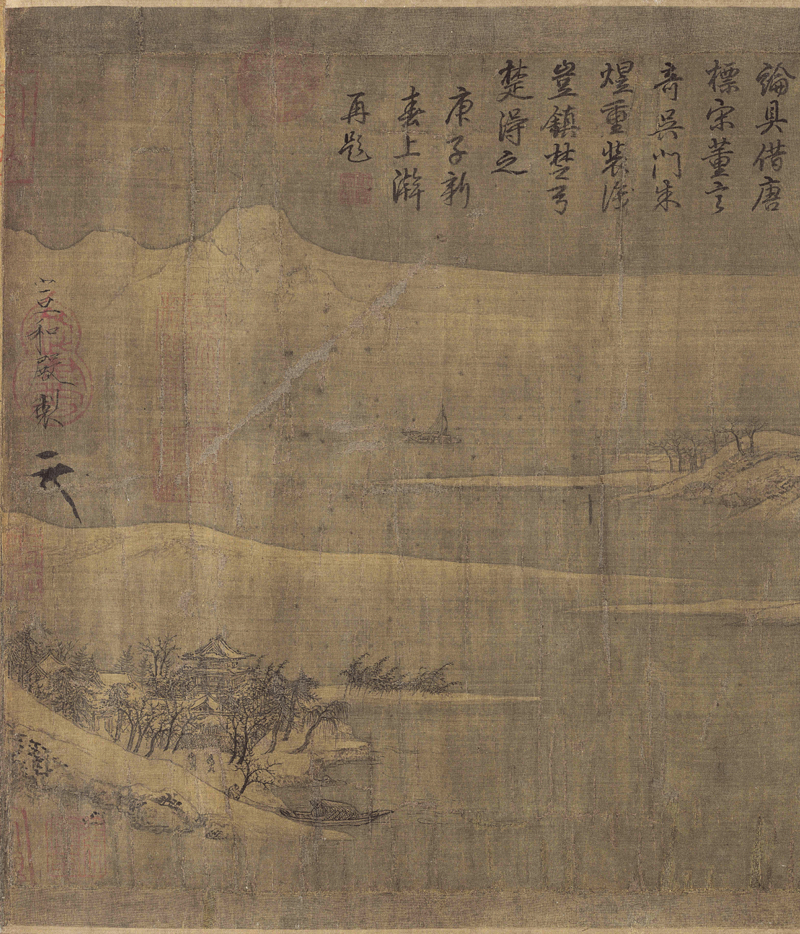 論具借唐
標宋董言
奇吳門朱
煌重裝潢
豈鎮楚弓
楚得之
庚子新
春上澣
再題
宣和殿製